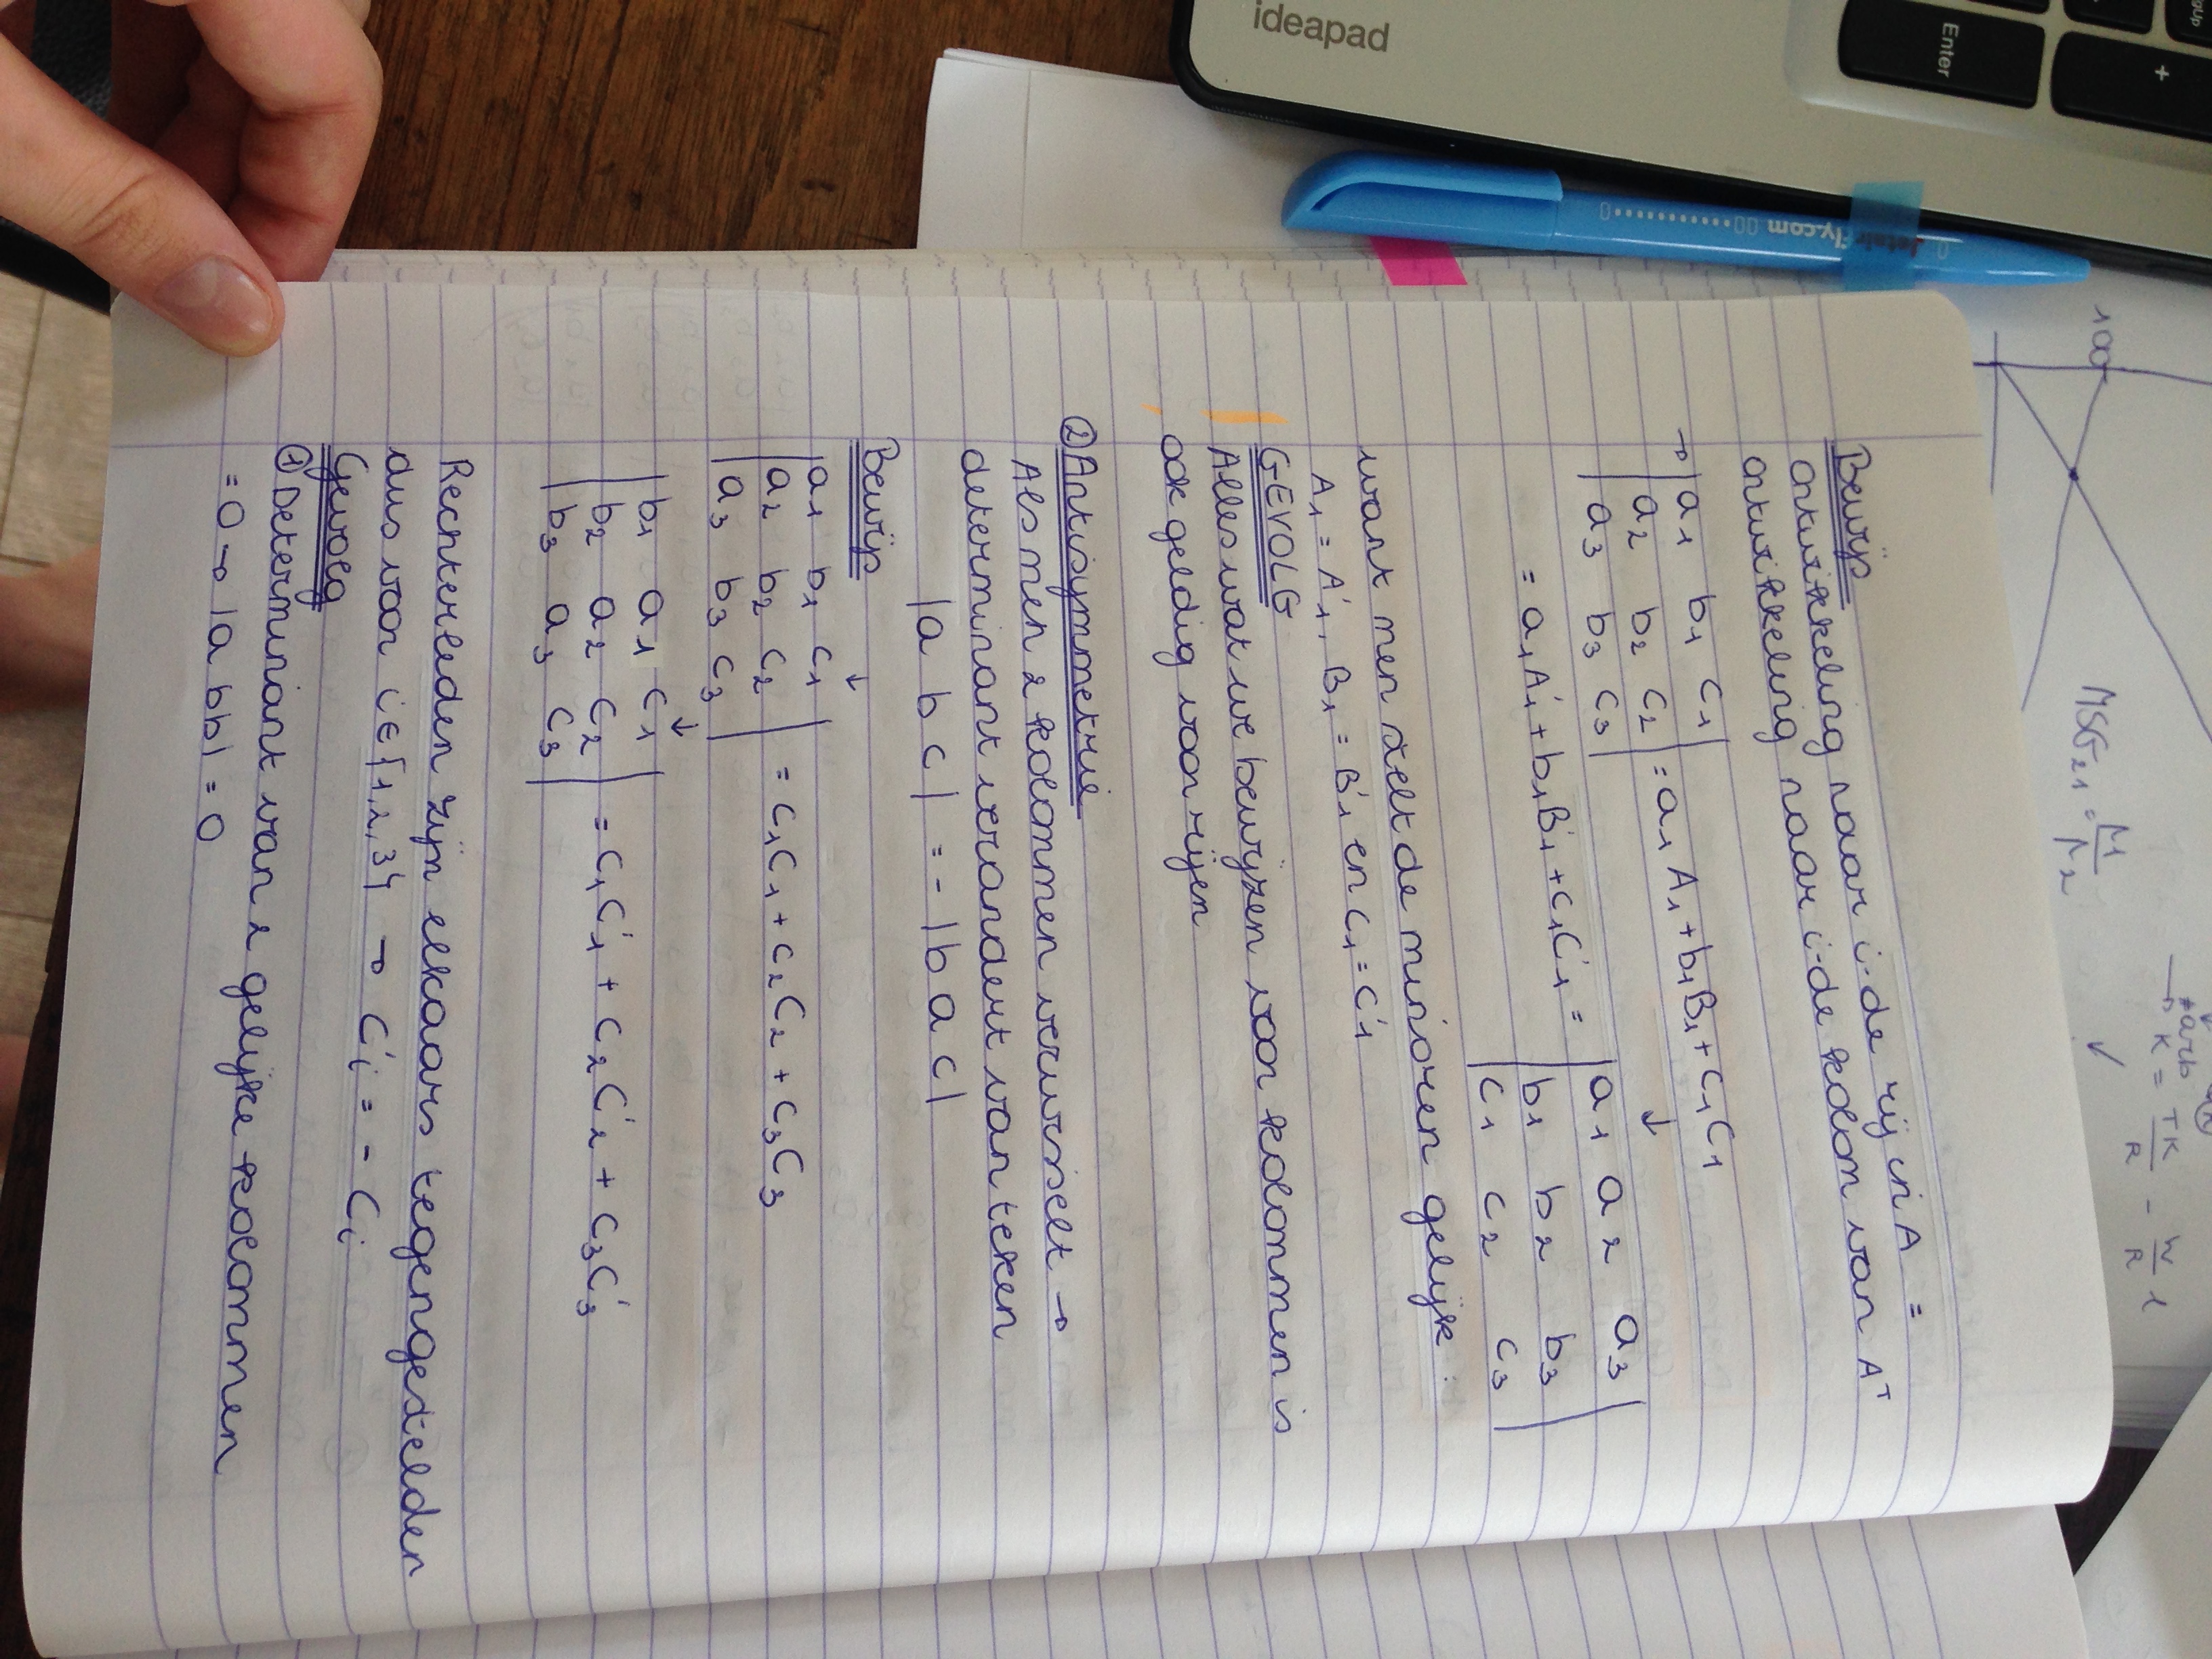 Bewijs
ontwikkeling naar i-de rij in A =
ontwikkeling naar i-de kolom van Aᵀ
→ |a₁ b₁ c₁|
|a₂ b₂ c₂| = a₁A₁ + b₁B₁ + c₁C₁
|a₃ b₃ c₃|
↓
= a₁A'₁ + b₁B'₁ + c₁C'₁ = |a₁ a₂ a₃|
|b₁ b₂ b₃|
|c₁ c₂ c₃|
want men stelt de minoren gelijk:
A₁ = A'₁, B₁ = B'₁ en C₁ = C'₁
GEVOLG
Alles wat we bewijzen voor kolommen is
ook geldig voor rijen
② Antisymmetrie
Als men 2 kolommen verwisselt →
determinant verandert van teken
|a b c| = - |b a c|
Bewijs
↓
|a₁ b₁ c₁|
|a₂ b₂ c₂| = c₁C₁ + c₂C₂ + c₃C₃
|a₃ b₃ c₃|
↓
|b₁ a₁ c₁|
|b₂ a₂ c₂| = c₁C'₁ + c₂C'₂ + c₃C'₃
|b₃ a₃ c₃|
Rechterleden zijn elkaars tegengestelden
dus voor i ∈ {1,2,3} → C'ᵢ = - Cᵢ
Gevolg
① Determinant van 2 gelijke kolommen
= 0 → |a b b| = 0
ideapad
Enter
+
PgUp
fly.com
100
MSG₂₁ = M₁/M₂
K = TK/R - W/R L